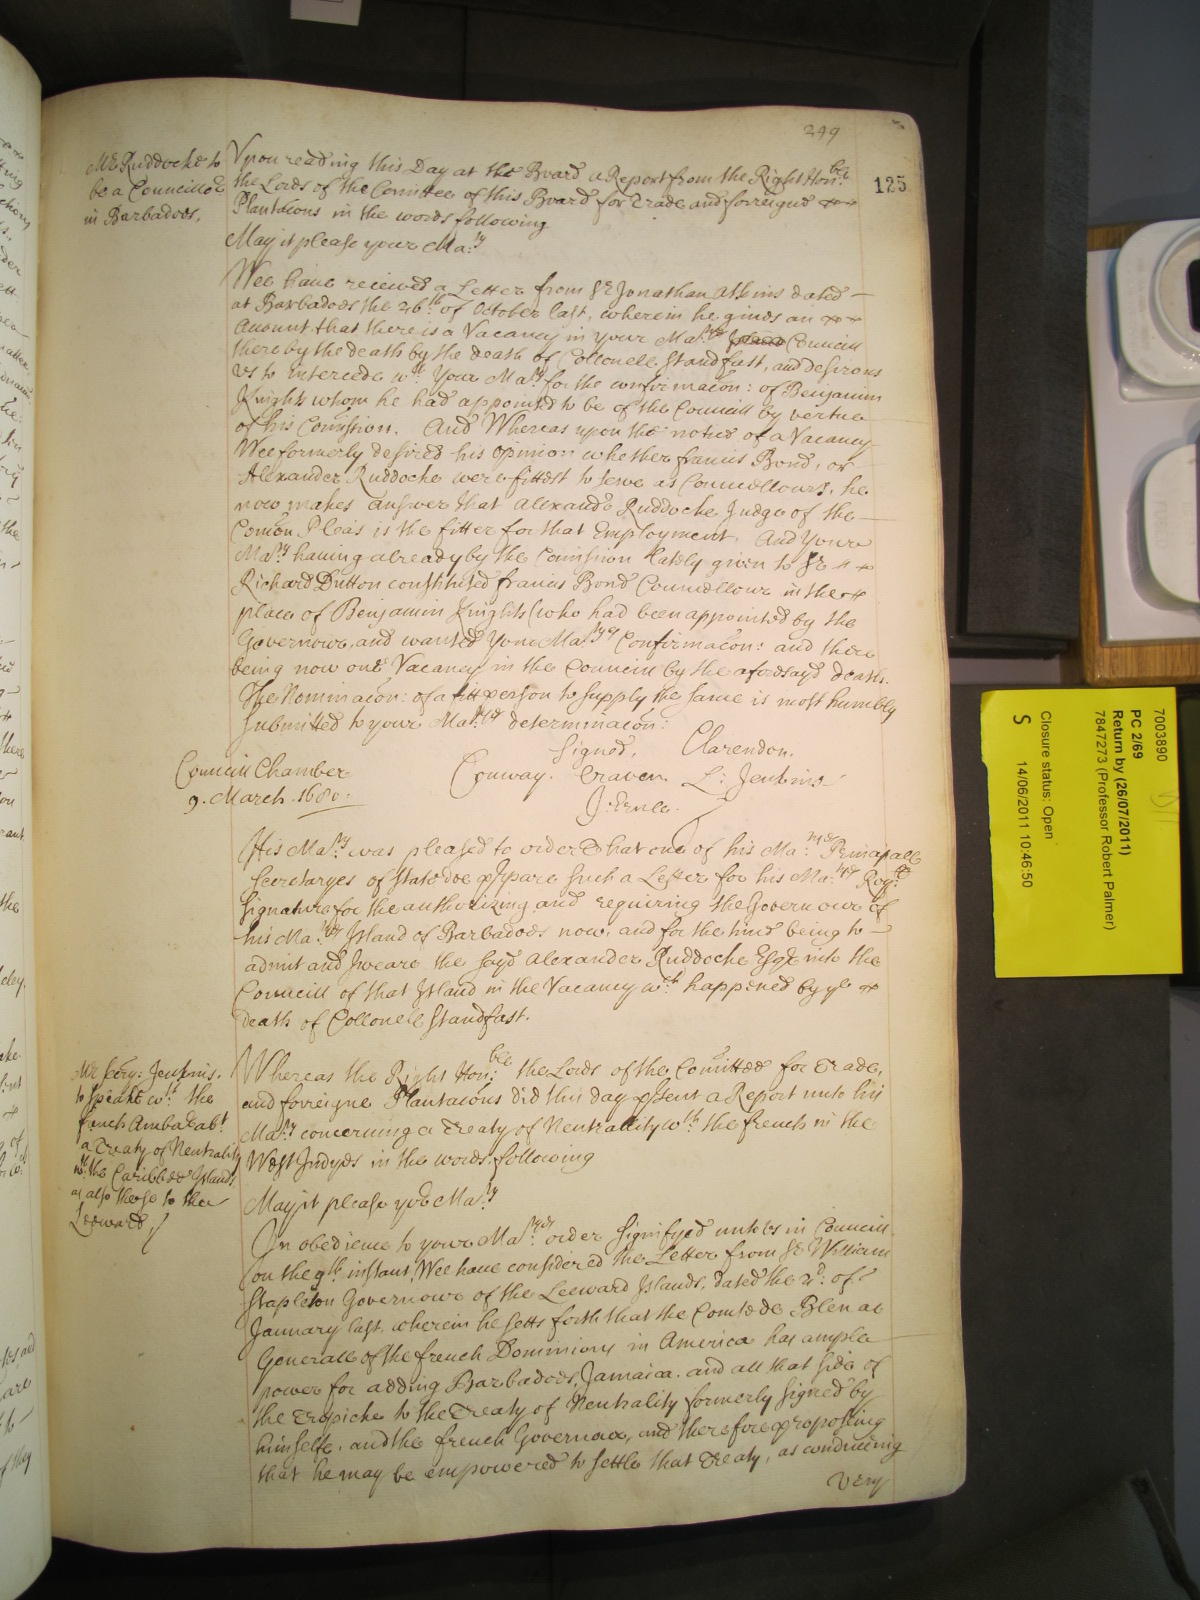 249
125
Mr Ruddocke to
be a Councillor
in Barbados.
Vpon reading this Day at the Board a Report from the Right Honble
the Lords of the Comittee of this Board for Trade and forreigne
Plantacons in the words following
May it please your Ma:ty
Wee have received a Letter from Sr Jonathan Atkins dated
at Barbados the 26th of October last, wherein he gives an
Account that there is a Vacancy in your Ma:ties Island Councill
there by the death by the death of Collonell Standfast, and desirous
vs to intercede wth Your Ma:ty for the confirmacon: of Benjamin
Knights whom he had appointed to be of the Councill by vertue
of his Comission. And Whereas upon the notice of a Vacancy
Wee formerly desired his opinion whether francis Bond, or
Alexander Ruddocke were fittest to serve as Councellours, he
now makes answer that Alexander Ruddocke Judge of the
Comon Pleas is the fitter for that Employment. And Your
Ma:ty having already by the Comission lately given to Sr
Richard Dutton constituted francis Bond Councellour in the
place of Benjamin Knights (who had been appointed by the
Governour, and wanted Your Ma:tys Confirmacon: and there
being now one Vacancy in the Councill by the aforesayd death.
The Nominacon: of a fitt person to supply the same is most humbly
submitted to your Ma:ties determinacon:
Signed, Clarendon.
Councill Chamber
9. March. 1680.
Conway. Craven. L: Jenkins
J: Ernle.
His Ma:ty was pleased to order that one of his Ma:ties Principall
Secretaryes of State doe prepare such a Letter for his Ma:tys Roy:ll
Signature for the authorizing and requiring the Governour of
his Ma:tys Island of Barbados now, and for the time being to
admit and sweare the sayd Alexander Ruddocke Esqr into the
Councill of that Island in the Vacancy wch happened by ye
death of Collonell Standfast.
Mr Secry: Jenkins.
to speake wth the
french Ambassadr
a Treaty of Neutrality
wth the Caribbee Islands
as also those to the
Leeward
Whereas the Right Hon:ble the Lords of the Comittee for Trade,
and forreigne Plantacons did this day present a Report unto his
Ma:ty concerning a Treaty of Neutrallity wth the french in the
West Indyes in the words following
May it please yor Ma:ty
In obedience to your Ma:ties order signifyed unto vs in Councill
on the 9th instant, Wee have considered the Letter from Sr William
Stapleton Governour of the Leeward Islands, dated the 2d: of
January last, wherein he setts forth that the Comte de Blenac
Generall of the french Dominions in America has ample
power for adding Barbados, Jamaica, and all that side of
the Tropicke to the Treaty of Neutrality formerly signed by
himselfe, and the french Governour, and therefore proposing
that he may be empowered to settle that Treaty, as conducing
very
7003890
PC 2/69
Return by (26/07/2011)
7847273 (Professor Robert Palmer)
Closure status: Open
S 14/06/2011 10:46:50